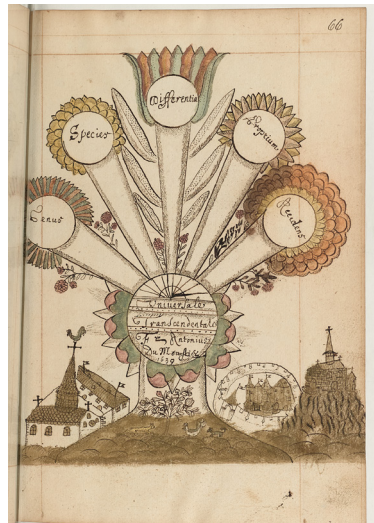 66
Differentia
Species
Proprium
Genus
Universale
Transcendentale
Antonius
1639